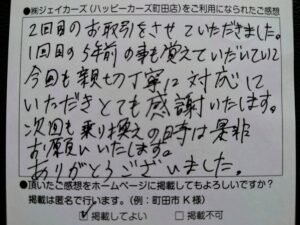 ●㈱ジェイカーズ（ハッピーカーズ町田店）をご利用になられたご感想
2回目のお取引をさせていただきました。
1回目の5年前の事も覚えていただいていて
今回も親切丁寧に対応して
いただきとても感謝いたします。
次回も乗り換えの時は是非
お願いいたします。
ありがとうございました。
●頂いたご感想をホームページに掲載してもよろしいですか？
掲載は匿名で行います。（例：町田市 K 様）
☑掲載してよい　□掲載不可